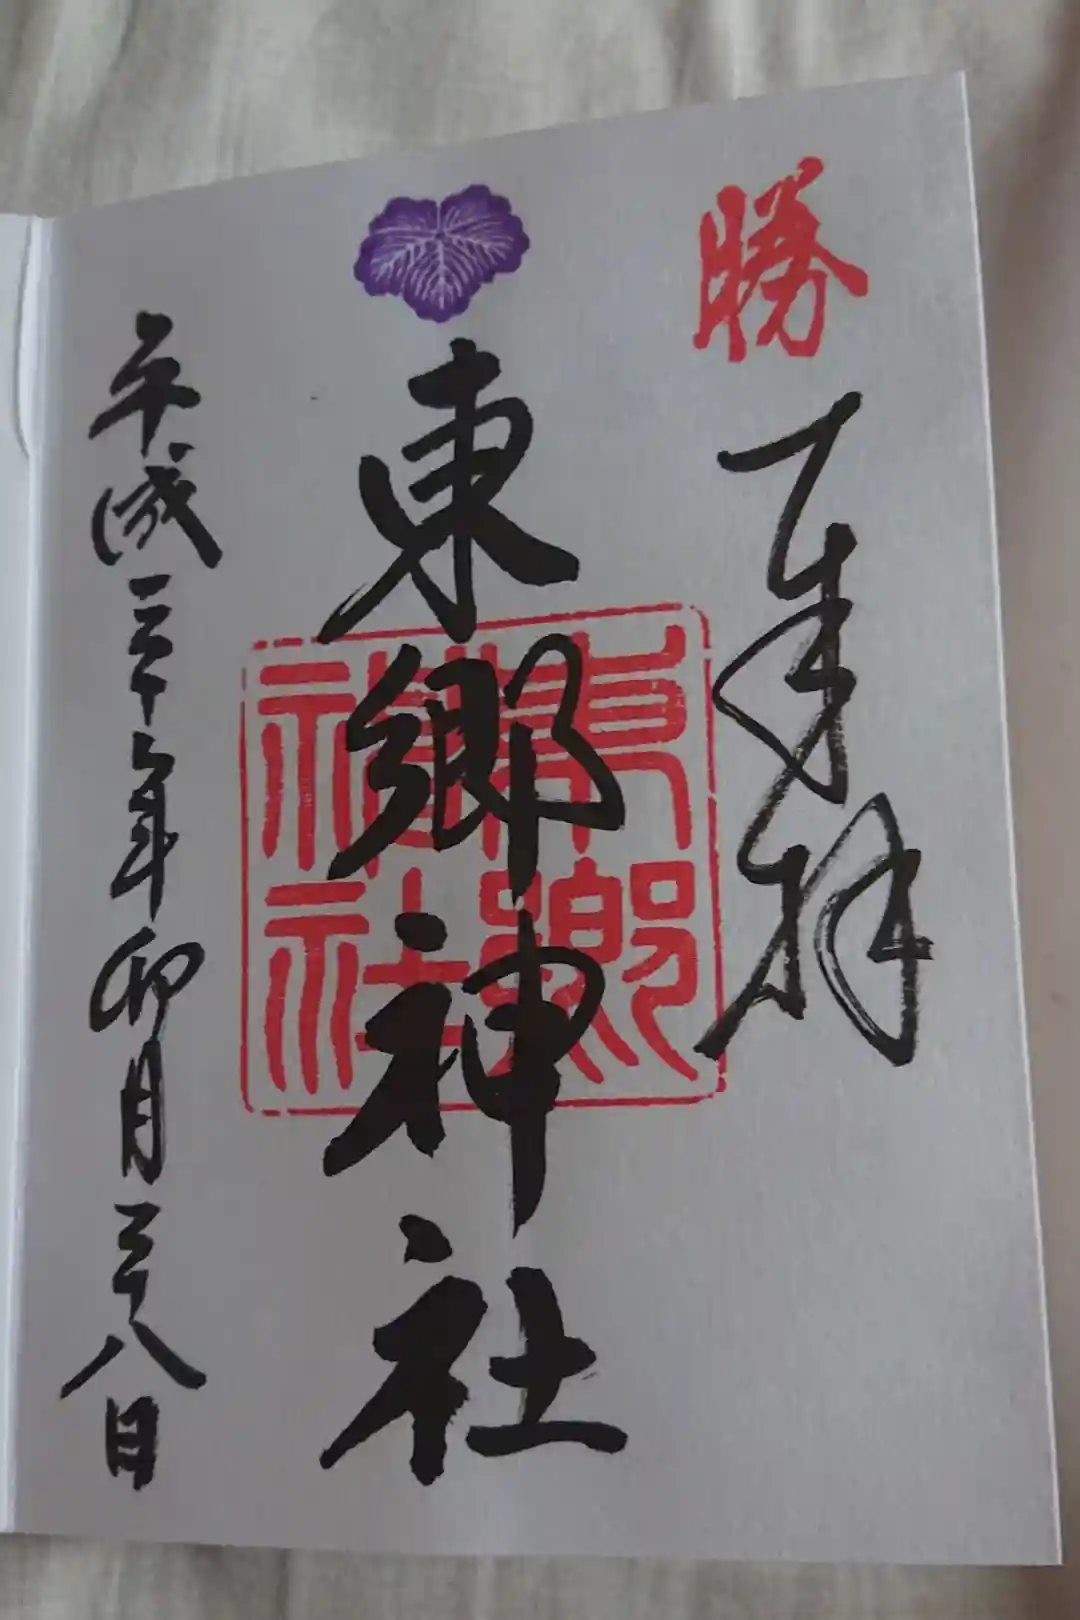 勝
奉拝
東郷神社
東郷神社
平成 年卯月二十八日